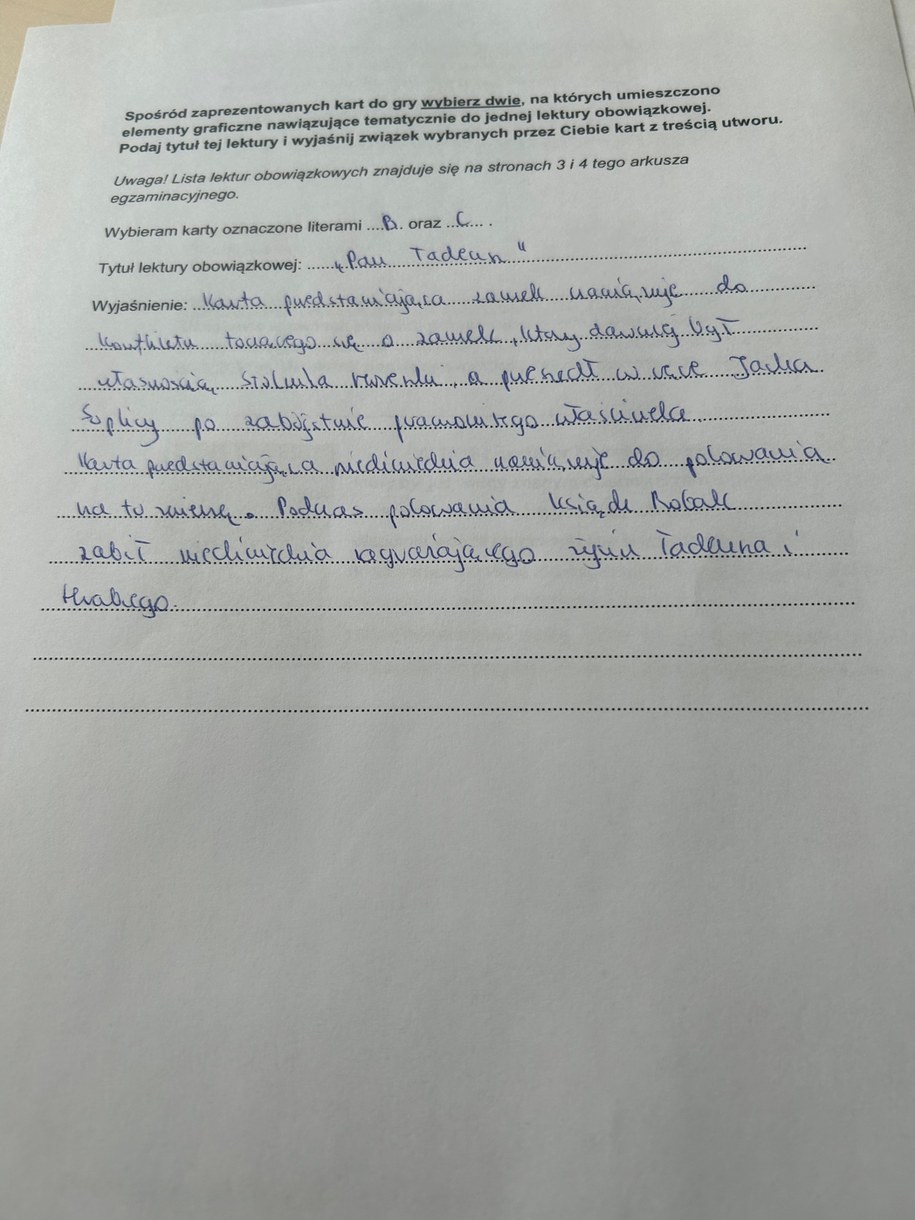 Spośród zaprezentowanych kart do gry wybierz dwie, na których umieszczono
elementy graficzne nawiązujące tematycznie do jednej lektury obowiązkowej.
Podaj tytuł tej lektury i wyjaśnij związek wybranych przez Ciebie kart z treścią utworu.
Uwaga! Lista lektur obowiązkowych znajduje się na stronach 3 i 4 tego arkusza
egzaminacyjnego.
Wybieram karty oznaczone literami ....B.. oraz ..C.... .
Tytuł lektury obowiązkowej: „Pan Tadeusz"
Wyjaśnienie: Karta przedstawiająca zamek nawiązuje do
konfliktu toczącego się o zamek, który dawniej był
własnością Stolnika, a przeszedł w ręce Jacka
Soplicy po zabójstwie prawowitego właściciela
Karta przedstawiająca niedźwiedzia nawiązuje do polowania
na tu zwierzę. Podczas polowania ksiądz Robak
zabił niedźwiedzia zagrażającego życiu Tadeusza i
Hrabiego.